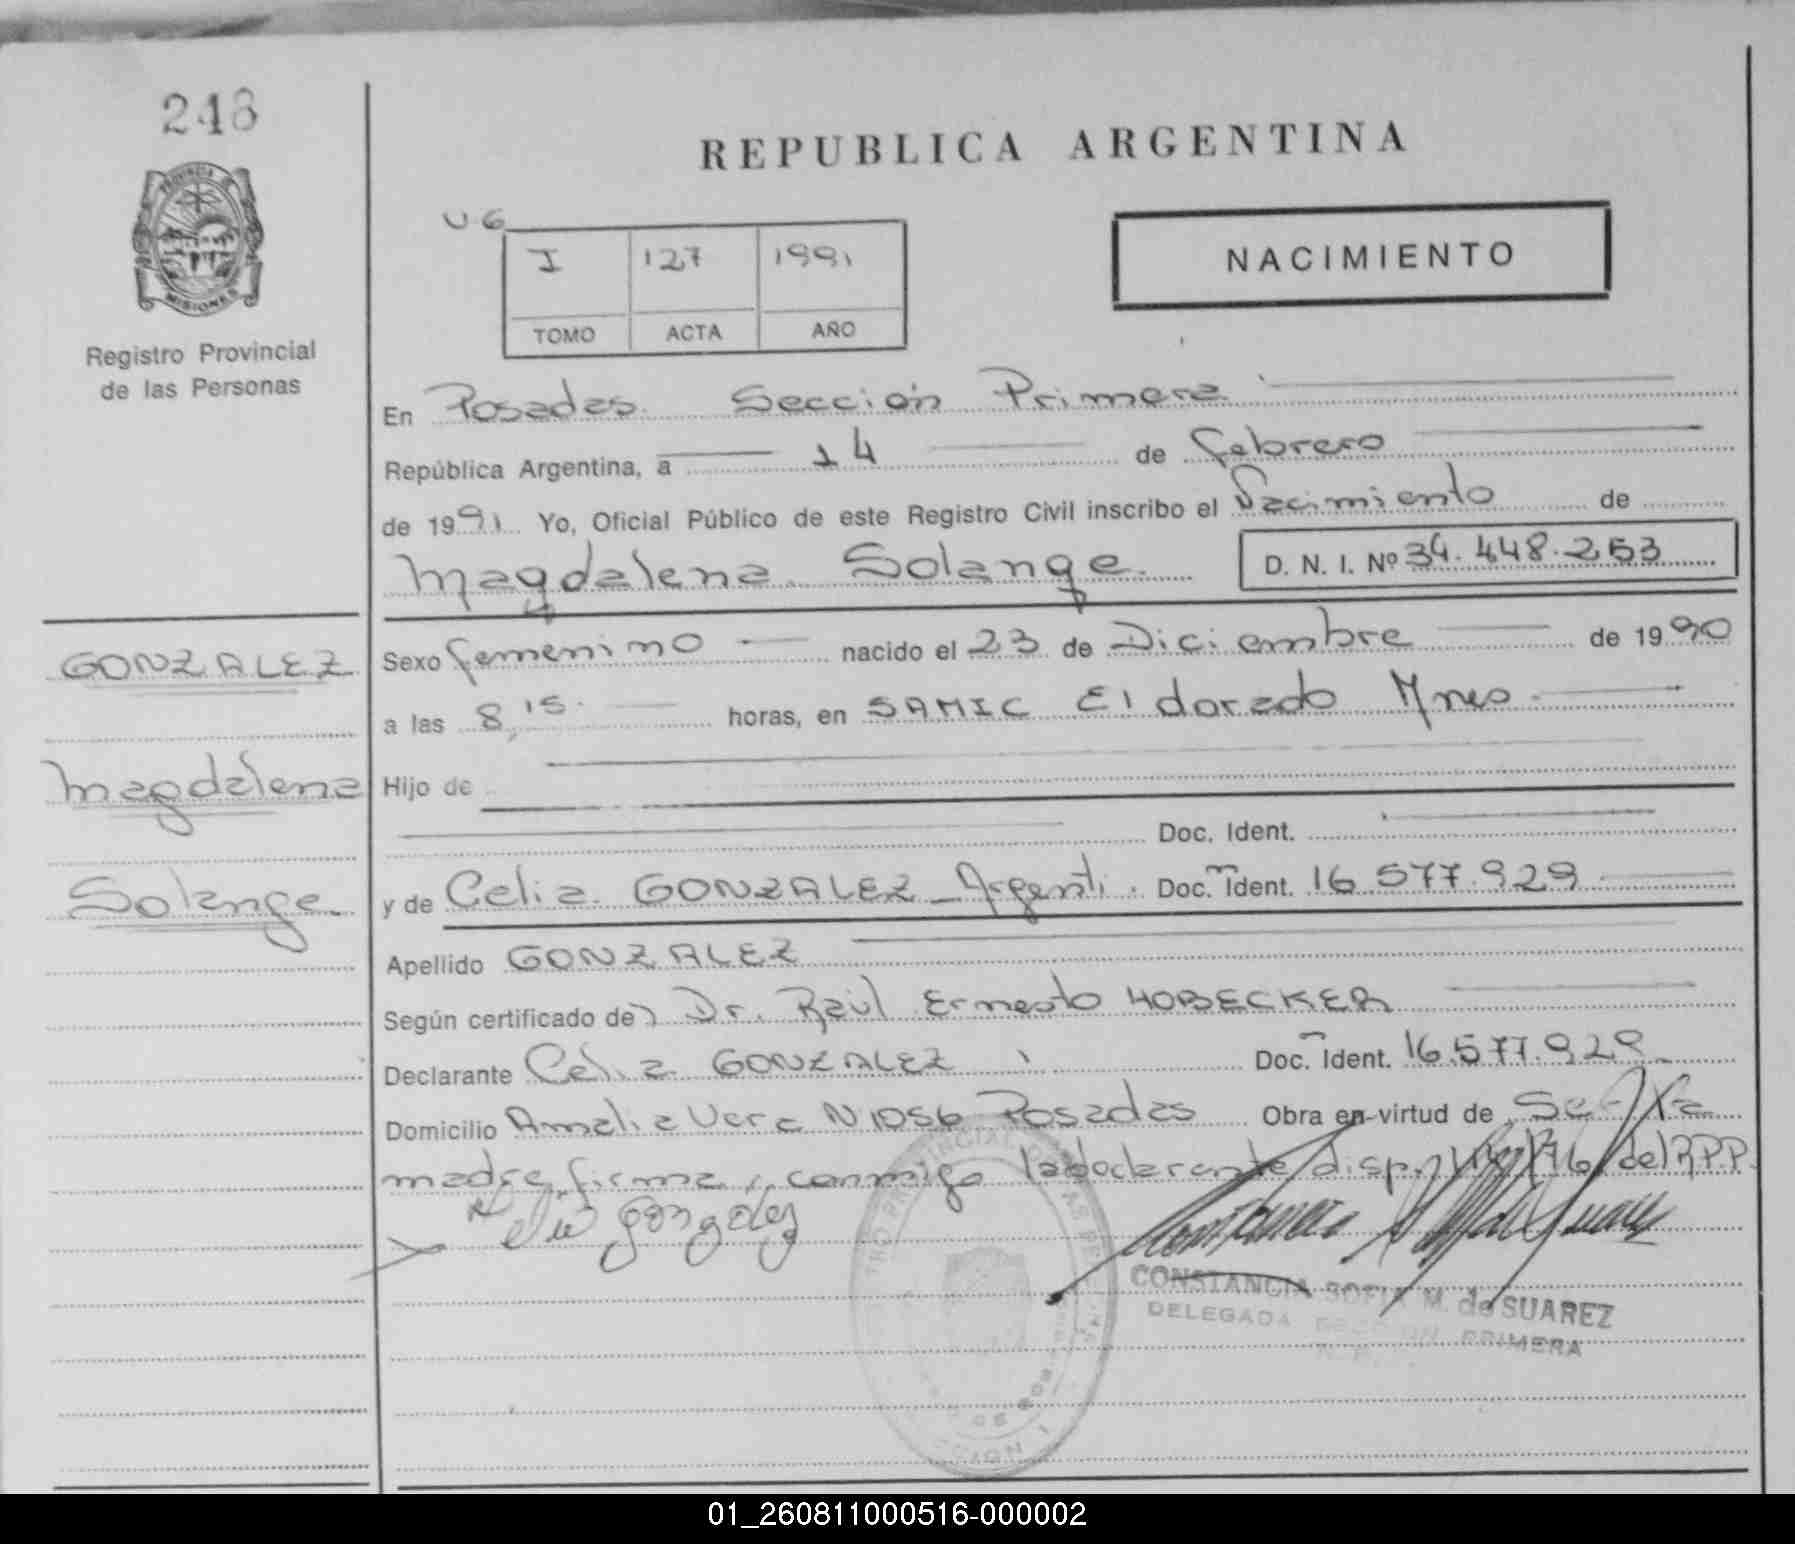 248
PROVINCIA DE
MISIONES
Registro Provincial
de las Personas
REPUBLICA ARGENTINA
U 6
I 127 1991
TOMO ACTA AÑO
NACIMIENTO
En Posadas Sección Primera
República Argentina, a 14 de febrero
de 1991 Yo, Oficial Público de este Registro Civil inscribo el Nacimiento de
Magdalena Solange. D. N. I. Nº 34.448.253
GONZALEZ
Magdalena
Solange
Sexo femenino nacido el 23 de Diciembre de 1990
a las 8,15 horas, en SAMIC Eldorado Mnes
Hijo de
Doc. Ident.
y de Celia GONZALEZ - Argenti. Doc. Ident. 16.577.929
Apellido GONZALEZ
Según certificado de Dr. Raúl Ernesto HOBECKER
Declarante Celia GONZALEZ Doc. Ident. 16.577.929
Domicilio Amalia Vera N 1056 Posadas Obra en virtud de Ser la
madre, firma conmigo la declarante disp. del R.P.P.
CONSTANCIA SOFIA M. de SUAREZ
DELEGADA SECCION PRIMERA
01_260811000516-000002